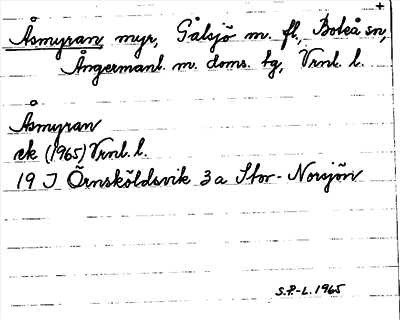 +
Åsmyran, myr, Gålsjö m. fl., Boteå sn,
Ångermanl. m. doms. tg, Vrnl. l.
Åsmyran
ek (1965) Vrnl. l.
19 J Örnsköldsvik 3 a Stor-Norsjön
S.P-L. 1965